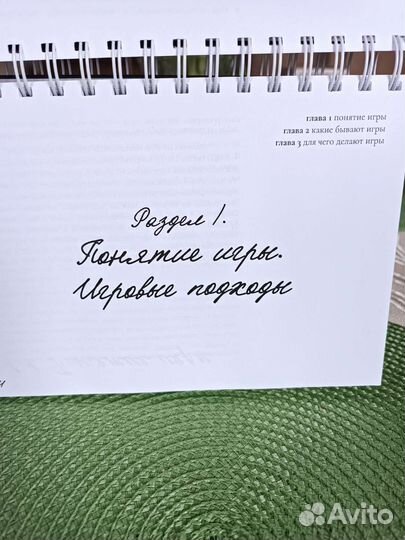 глава 1 понятие игры
глава 2 какие бывают игры
глава 3 для чего делают игры
Раздел 1.
Понятие игры.
Игровые подходы
Avito